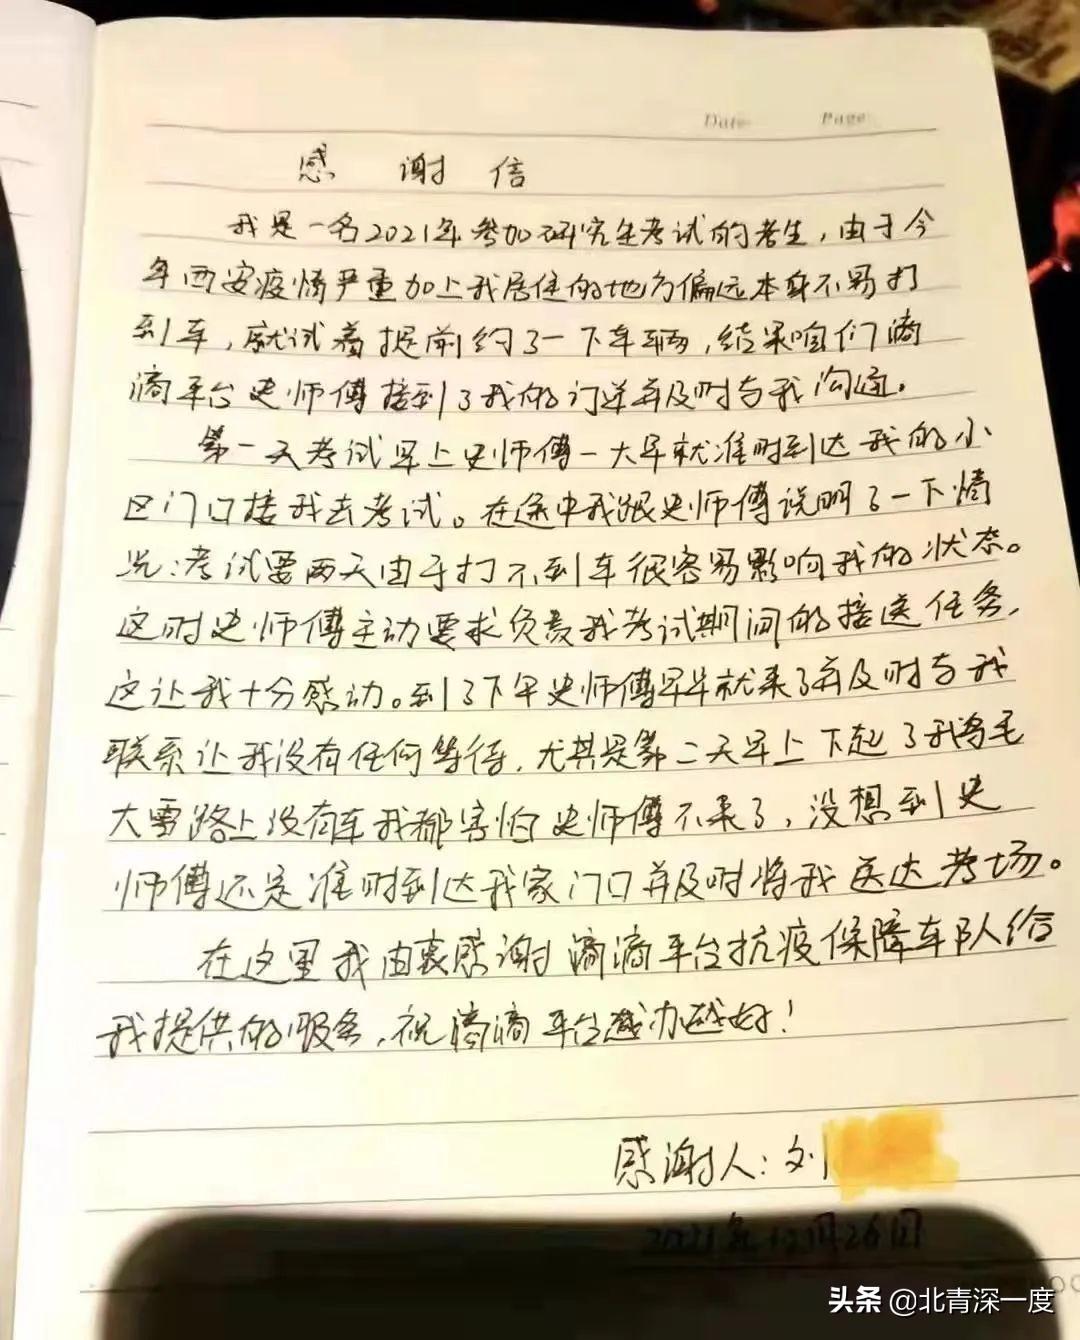 Date Page
感 谢 信
我是一名2021年参加研究生考试的考生，由于今
年西安疫情严重加上我居住的地方偏远本身不易打
到车，就试着提前约了一下车辆，结果咱们滴
滴平台史师傅接到了我的订单并及时与我沟通。
第一天考试早上史师傅一大早就准时到达我的小
区门口接我去考试。在途中我跟史师傅说明了一下情
况：考试要两天由于打不到车很容易影响我的状态。
这时史师傅主动要求负责我考试期间的接送任务，
这让我十分感动。到了下午史师傅早早就来了并及时与我
联系让我没有任何等待，尤其是第二天早上下起了鹅毛
大雪路上没有车我都害怕史师傅不来了，没想到史
师傅还是准时到达我家门口并及时将我送达考场。
在这里我由衷感谢滴滴平台抗疫保障车队给
我提供的服务，祝滴滴平台越办越好！
感谢人：刘
2021年12月26日
头条 @北青深一度